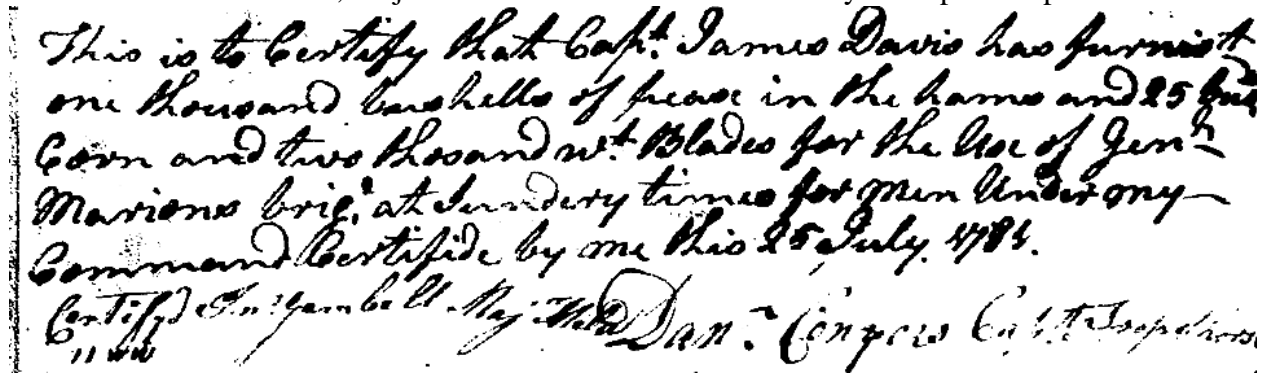 This is to Certify that Capt. James Davis has furnisht
one thousand bushells of pease in the hams and 25 bus
Corn and two thosand wt. Blades for the Use of Genl
Marions brigd. at Sundery times for Men Under my
Command Certifide by me this 25 July 1781.
Certifyd Maj Danl. Conyers Capt. Troop horse